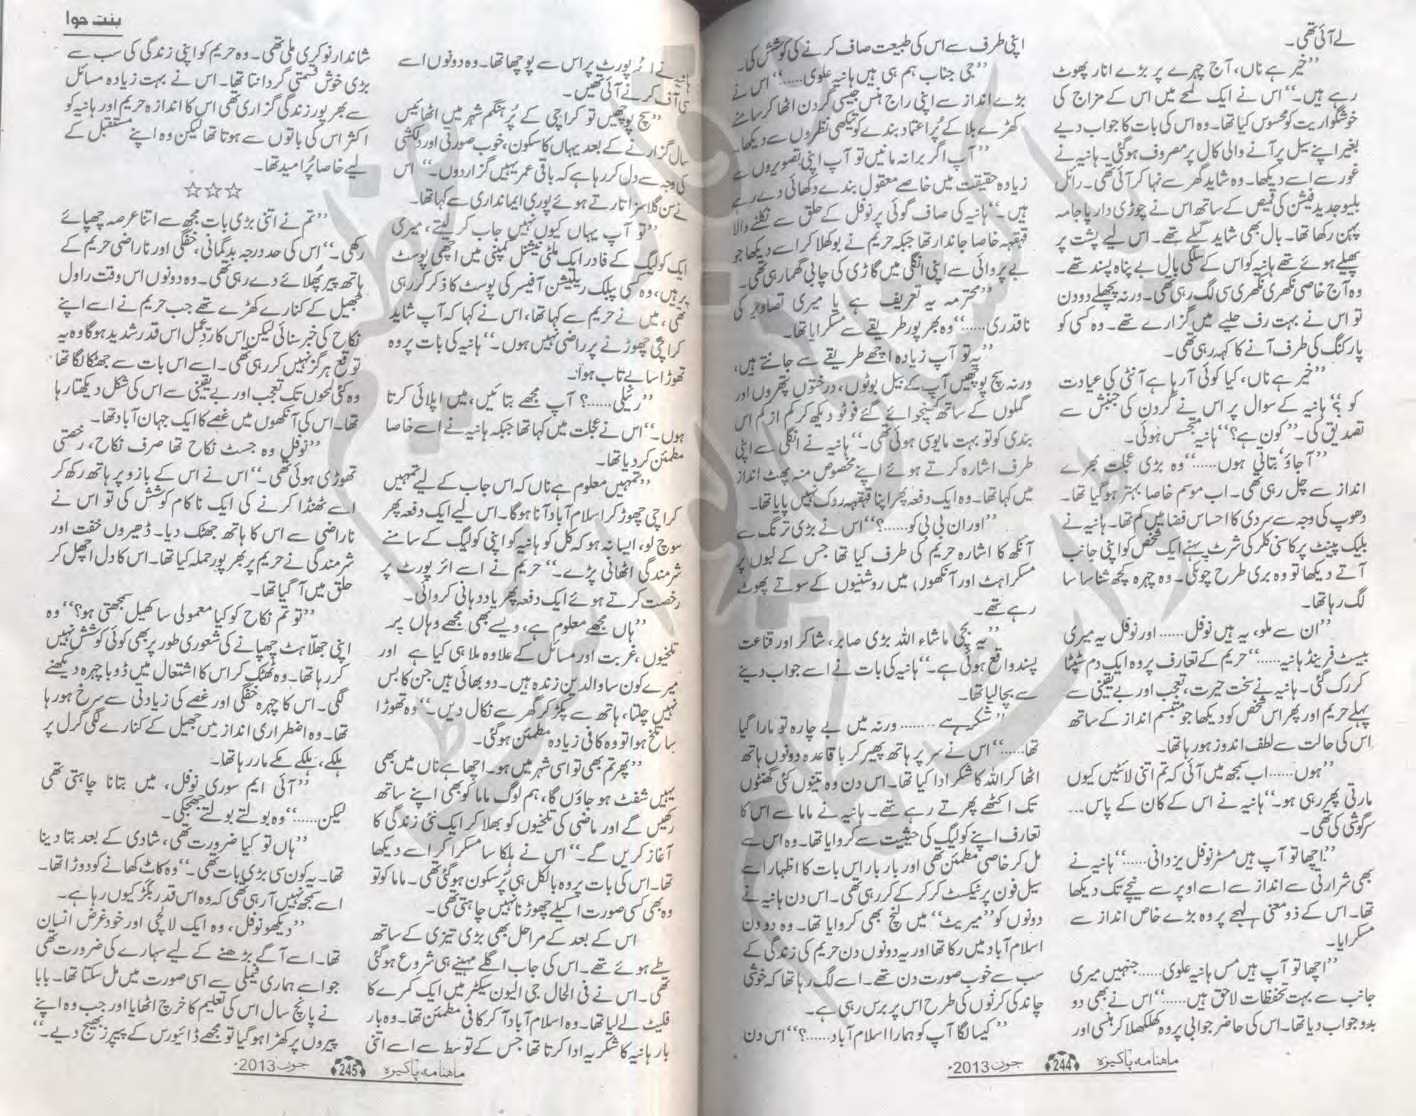 لے آئی تھی۔
”خیر ہے ناں، آج چہرے پر بڑے انار پھوٹ
رہے ہیں۔“ اس نے ایک لمحے میں اس کے مزاج کی
خوشگواریت کو محسوس کیا تھا۔ وہ اس کی بات کا جواب دیے
بغیر اپنے سیل پر آنے والی کال پر مصروف ہو گئی۔ ہانیہ نے
غور سے اسے دیکھا۔ وہ شاید گھر سے نہا کر آئی تھی۔ رائل
بلیو جدید فیشن کی قمیص کے ساتھ اس نے چوڑی دار پاجامہ
پہن رکھا تھا۔ بال بھی شاید گیلے تھے۔ اس لیے پشت پر
پھیلے ہوئے تھے ہانیہ کو اس کے سلکی بال بے پناہ پسند تھے۔
وہ آج خاصی نکھری نکھری سی لگ رہی تھی۔ ورنہ پچھلے دو دن
تو اس نے بہت رف حلیے میں گزارے تھے۔ وہ کسی کو
پارکنگ کی طرف آنے کا کہہ رہی تھی۔
”خیر ہے ناں، کیا کوئی آرہا ہے آنٹی کی عیادت
کو؟“ ہانیہ کے سوال پر اس نے گردن کی جنبش سے
تصدیق کی۔ ”کون ہے؟“ ہانیہ متجسس ہوئی۔
”آجاؤ، بتاتی ہوں......“ وہ بڑی عجلت بھرے
انداز سے چل رہی تھی۔ اب موسم خاصا بہتر ہو گیا تھا۔
دھوپ کی وجہ سے سردی کا احساس فضا میں کم تھا۔ ہانیہ نے
بلیک پینٹ پر کاسنی کلر کی شرٹ پہنے ایک شخص کو اپنی جانب
آتے دیکھا تو وہ بری طرح چونکی۔ وہ چہرہ کچھ شناسا سا
لگ رہا تھا۔
”ان سے ملو، یہ ہیں نوفل...... اور نوفل یہ میری
بیسٹ فرینڈ ہانیہ......“ حریم کے تعارف پر وہ ایک دم سٹپٹا
کر رک گئی۔ ہانیہ نے سخت حیرت، تعجب اور بے یقینی سے
پہلے حریم اور پھر اس شخص کو دیکھا جو متبسم انداز کے ساتھ
اس کی حالت سے لطف اندوز ہو رہا تھا۔
”ہوں...... اب سمجھ میں آئی کہ تم اتنی لائٹیں کیوں
مارتی پھر رہی ہو۔“ ہانیہ نے اس کے کان کے پاس...
سرگوشی کی تھی۔
”اچھا تو آپ ہیں مسٹر نوفل یزدانی......“ ہانیہ نے
بھی شرارتی سے انداز سے اسے اوپر سے نیچے تک دیکھا
تھا۔ اس کے ذو معنی لہجے پر وہ بڑے خاص انداز سے
مسکرایا۔
”اچھا تو آپ ہیں مس ہانیہ علوی...... جنہیں میری
جانب سے بہت تحفظات لاحق ہیں......“ اس نے بھی دو
بدو جواب دیا تھا۔ اس کی حاضر جوابی پر وہ کھلکھلا کر ہنسی اور
اپنی طرف سے اس کی طبیعت صاف کرنے کی کوشش کی۔
”جی جناب ہم ہی ہیں ہانیہ علوی......“ اس نے
بڑے انداز سے اپنی راج ہنس جیسی گردن اٹھا کر سامنے
کھڑے بلا کے پُر اعتماد بندے کو تیکھی نظروں سے دیکھا۔
”آپ اگر برا نہ مانیں تو آپ اپنی تصویروں سے
زیادہ حقیقت میں خاصے معقول بندے دکھائی دے رہے
ہیں۔“ ہانیہ کی صاف گوئی پر نوفل کے حلق سے نکلنے والا
قہقہہ خاصا جاندار تھا جبکہ حریم نے بوکھلا کر اسے دیکھا جو
بے پروائی سے اپنی انگلی میں گاڑی کی چابی گھما رہی تھی۔
”محترمہ یہ تعریف ہے یا میری تصاویر کی
ناقدری......“ وہ بھرپور طریقے سے مسکرایا تھا۔
”یہ تو آپ زیادہ اچھے طریقے سے جانتے ہیں،
ورنہ سچ پوچھیں آپ کے بیل بوٹوں، درختوں، پتھروں اور
گملوں کے ساتھ کھنچوائے گئے فوٹو دیکھ کر کم از کم اس
بندی کو تو بہت مایوسی ہوئی تھی۔“ ہانیہ نے انگلی سے اپنی
طرف اشارہ کرتے ہوئے اپنے مخصوص منہ پھٹ انداز
میں کہا تھا۔ وہ ایک دفعہ پھر اپنا قہقہہ روک نہیں پایا تھا۔
”اور ان بی بی کو......؟“ اس نے بڑی ترنگ سے
آنکھ کا اشارہ حریم کی طرف کیا تھا جس کے لبوں پر
مسکراہٹ اور آنکھوں میں روشنیوں کے سوتے پھوٹ
رہے تھے۔
”یہ بچی ماشاء اللہ بڑی صابر، شاکر اور قناعت
پسند واقع ہوئی ہے۔“ ہانیہ کی بات نے اسے جواب دینے
سے بچا لیا تھا۔
”شکر ہے ........ ورنہ میں بے چارہ تو مارا گیا
تھا......“ اس نے سر پر ہاتھ پھیر کر باقاعدہ دونوں ہاتھ
اٹھا کر اللہ کا شکر ادا کیا تھا۔ اس دن وہ تینوں کئی گھنٹوں
تک اکٹھے پھرتے رہے تھے۔ ہانیہ نے ماما سے اس کا
تعارف اپنے کولیگ کی حیثیت سے کروایا تھا۔ وہ اس سے
مل کر خاصی مطمئن تھی اور بار بار اس بات کا اظہار اسے
سیل فون پر ٹیکسٹ کر کر کے کر رہی تھی۔ اس دن ہانیہ نے
دونوں کو ”میریٹ“ میں لنچ بھی کروایا تھا۔ وہ دو دن
اسلام آباد میں رکا تھا اور یہ دونوں دن حریم کی زندگی کے
سب سے خوب صورت دن تھے۔ اسے لگ رہا تھا کہ خوشی
چاند کی کرنوں کی طرح اس پر برس رہی ہے۔
”کیسا لگا آپ کو ہمارا اسلام آباد......؟“ اس دن
ماہنامہ پاکیزہ 244 جون 2013ء
بنت حوا
ہانیہ نے ائر پورٹ پر اس سے پوچھا تھا۔ وہ دونوں اسے
سی آف کرنے آئی تھیں۔
”سچ پوچھیں تو کراچی کے پُر ہنگم شہر میں اٹھائیس
سال گزارنے کے بعد یہاں کا سکون، خوب صورتی اور دلکشی
کی وجہ سے دل کر رہا ہے کہ باقی عمر یہیں گزار دوں۔“ اس
نے سن گلاسز اتارتے ہوئے پوری ایمانداری سے کہا تھا۔
”تو آپ یہاں کیوں نہیں جاب کر لیتے، میری
ایک کولیگ کے فادر ایک ملٹی نیشنل کمپنی میں اچھی پوسٹ
پر ہیں، وہ کسی پبلک ریلیشن آفیسر کی پوسٹ کا ذکر کر رہی
تھی، میں نے حریم سے کہا تھا، اس نے کہا کہ آپ شاید
کراچی چھوڑنے پر راضی نہیں ہوں۔“ ہانیہ کی بات پر وہ
تھوڑا سا بے تاب ہوا۔
”رئیلی......؟ آپ مجھے بتائیں، میں اپلائی کرتا
ہوں۔“ اس نے عجلت میں کہا تھا جبکہ ہانیہ نے اسے خاصا
مطمئن کر دیا تھا۔
”تمہیں معلوم ہے ناں کہ اس جاب کے لیے تمہیں
کراچی چھوڑ کر اسلام آباد آنا ہوگا۔ اس لیے ایک دفعہ پھر
سوچ لو، ایسا نہ ہو کہ کل کو ہانیہ کو اپنی کولیگ کے سامنے
شرمندگی اٹھانی پڑے۔“ حریم نے اسے ائر پورٹ پر
رخصت کرتے ہوئے ایک دفعہ پھر یاد دہانی کروائی۔
”ہاں مجھے معلوم ہے، ویسے بھی مجھے وہاں پر
تلخیوں، غربت اور مسائل کے علاوہ ملا ہی کیا ہے اور
میرے کون سا والدین زندہ ہیں۔ دو بھائی ہیں جن کا بس
نہیں چلتا، ہاتھ سے پکڑ کر گھر سے نکال دیں۔“ وہ تھوڑا
سا تلخ ہوا تو وہ کافی زیادہ مطمئن ہو گئی۔
”پھر تم بھی تو اسی شہر میں ہو۔ اچھا ہے ناں میں بھی
یہیں شفٹ ہو جاؤں گا، ہم لوگ ماما کو بھی اپنے ساتھ
رکھیں گے اور ماضی کی تلخیوں کو بھلا کر ایک نئی زندگی کا
آغاز کریں گے۔“ اس نے ہلکا سا مسکرا کر اسے دیکھا
تھا۔ اس کی بات پر وہ بالکل ہی پُر سکون ہو گئی تھی۔ ماما کو تو
وہ بھی کسی صورت اکیلے چھوڑنا نہیں چاہتی تھی۔
اس کے بعد کے مراحل بھی بڑی تیزی کے ساتھ
طے ہوئے تھے۔ اس کی جاب اگلے مہینے ہی شروع ہو گئی
تھی۔ اس نے فی الحال جی الیون سیکٹر میں ایک کمرے کا
فلیٹ لے لیا تھا۔ وہ اسلام آباد آ کر کافی مطمئن تھا۔ وہ بار
بار ہانیہ کا شکریہ ادا کرتا تھا جس کے توسط سے اسے اتنی
شاندار نوکری ملی تھی۔ وہ حریم کو اپنی زندگی کی سب سے
بڑی خوش قسمتی گردانتا تھا۔ اس نے بہت زیادہ مسائل
سے بھرپور زندگی گزاری تھی اس کا اندازہ حریم اور ہانیہ کو
اکثر اس کی باتوں سے ہوتا تھا لیکن وہ اپنے مستقبل کے
لیے خاصا پُر امید تھا۔
☆☆☆
”تم نے اتنی بڑی بات مجھ سے اتنا عرصہ چھپائے
رکھی۔“ اس کی حد درجہ بدگمانی، خفگی اور ناراضی حریم کے
ہاتھ پیر پھلائے دے رہی تھی۔ وہ دونوں اس وقت راول
جھیل کے کنارے کھڑے تھے جب حریم نے اسے اپنے
نکاح کی خبر سنائی لیکن اس کا ردِعمل اس قدر شدید ہوگا وہ یہ
توقع ہرگز نہیں کر رہی تھی۔ اسے اس بات سے جھٹکا لگا تھا
وہ کئی لمحوں تک تعجب اور بے یقینی سے اس کی شکل دیکھتا رہا
تھا۔ اس کی آنکھوں میں غصے کا ایک جہان آباد تھا۔
”نوفل وہ جسٹ نکاح تھا صرف نکاح، رخصتی
تھوڑی ہوئی تھی۔“ اس نے اس کے بازو پر ہاتھ رکھ کر
اسے ٹھنڈا کرنے کی ایک ناکام کوشش کی تو اس نے
ناراضی سے اس کا ہاتھ جھٹک دیا۔ ڈھیروں خفت اور
شرمندگی نے حریم پر بھرپور حملہ کیا تھا۔ اس کا دل اچھل کر
حلق میں آ گیا تھا۔
”تو تم نکاح کو کیا معمولی سا کھیل سمجھتی ہو؟“ وہ
اپنی جھلاہٹ چھپانے کی شعوری طور پر بھی کوئی کوشش نہیں
کر رہا تھا۔ وہ ٹھٹک کر اس کا اشتعال میں ڈوبا چہرہ دیکھنے
لگی۔ اس کا چہرہ خفگی اور غصے کی زیادتی سے سرخ ہو رہا
تھا۔ وہ اضطراری انداز میں جھیل کے کنارے لگی گرل پر
ہلکے، ہلکے مکے مار رہا تھا۔
”آئی ایم سوری نوفل، میں بتانا چاہتی تھی
لیکن......“ وہ بولتے بولتے جھجکی۔
”ہاں تو کیا ضرورت تھی، شادی کے بعد بتا دینا
تھا۔ یہ کون سی بڑی بات تھی۔“ وہ کاٹ کھانے کو دوڑا تھا۔
اسے سمجھ نہیں آرہی تھی کہ وہ اس قدر بگڑ کیوں رہا ہے۔
”دیکھو نوفل، وہ ایک لالچی اور خود غرض انسان
تھا۔ اسے آگے بڑھنے کے لیے سہارے کی ضرورت تھی
جو اسے ہماری فیملی سے اسی صورت میں مل سکتا تھا۔ بابا
نے پانچ سال اس کی تعلیم کا خرچ اٹھایا اور جب وہ اپنے
پیروں پر کھڑا ہو گیا تو مجھے ڈائیورس کے پیپرز بھیج دیے۔“
ماہنامہ پاکیزہ 245 جون 2013ء